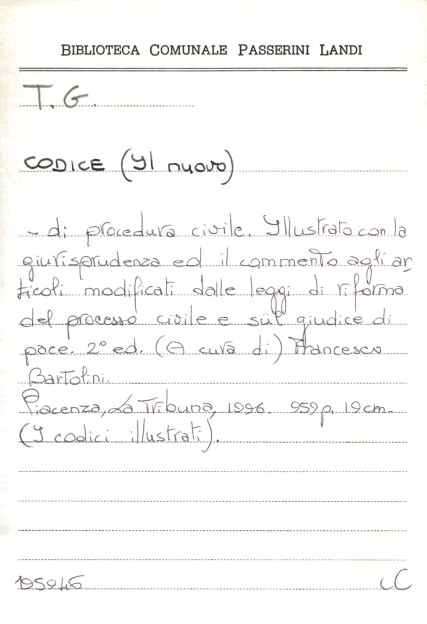 BIBLIOTECA COMUNALE PASSERINI LANDI
T. G.
CODICE (Il nuovo)
- di procedura civile. Illustrato con la
giurisprudenza ed il commento agli ar-
ticoli modificati dalle leggi di riforma
del processo civile e sul giudice di
pace. 2° ed. (A cura di) Francesco
Bartolini.
Piacenza, La Tribuna, 1996. 959p. 19cm.
(I codici illustrati).
195946 CC